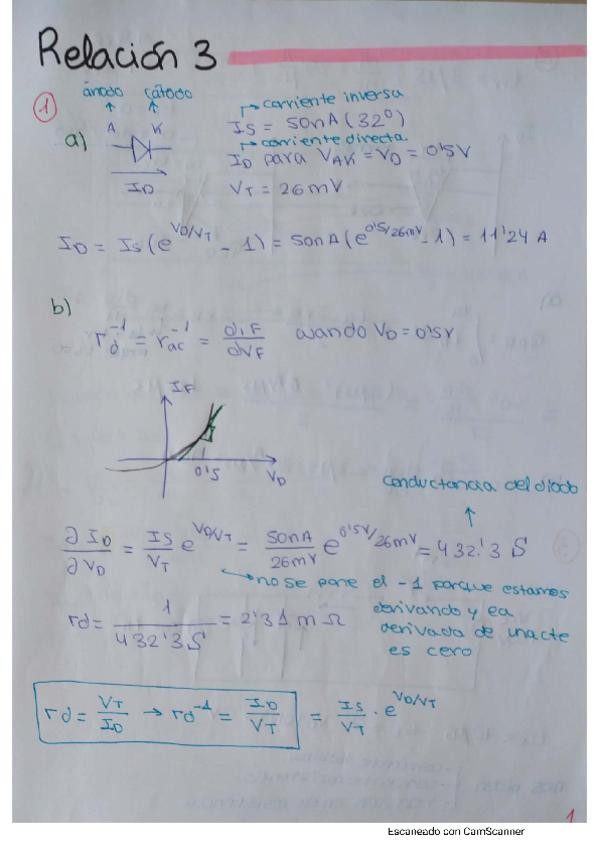 Relación 3
ánodo cátodo
① corriente inversa
a) A K Is = 50nA (32º)
corriente directa
ID para VAK = VD = 0'5V
ID VT = 26mV
ID = Is(e^VD/VT - 1) = 50nA(e^0'5/26mV - 1) = 11'24 A
b)
rd^-1 = rac^-1 = diF/dVF cuando VD = 0'5V
IF
0'5 VD
conductancia del diodo
∂ID/∂VD = IS/VT e^VD/VT = 50nA/26mV e^0'5V/26mV = 432'3 S
no se pone el -1 porque estamos
derivando y la
derivada de una cte
es cero
rd = 1/432'3S = 2'31 mΩ
rd = VT/ID → rd^-1 = ID/VT = IS/VT · e^VD/VT
1
Escaneado con CamScanner